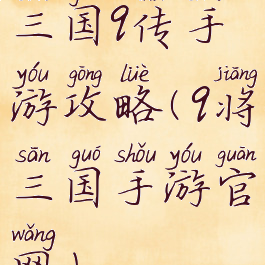 三国9传手
yóu gōng lüè jiāng
游攻略(9将
sān guó shǒu yóu guān
三国手游官
wǎng
网)